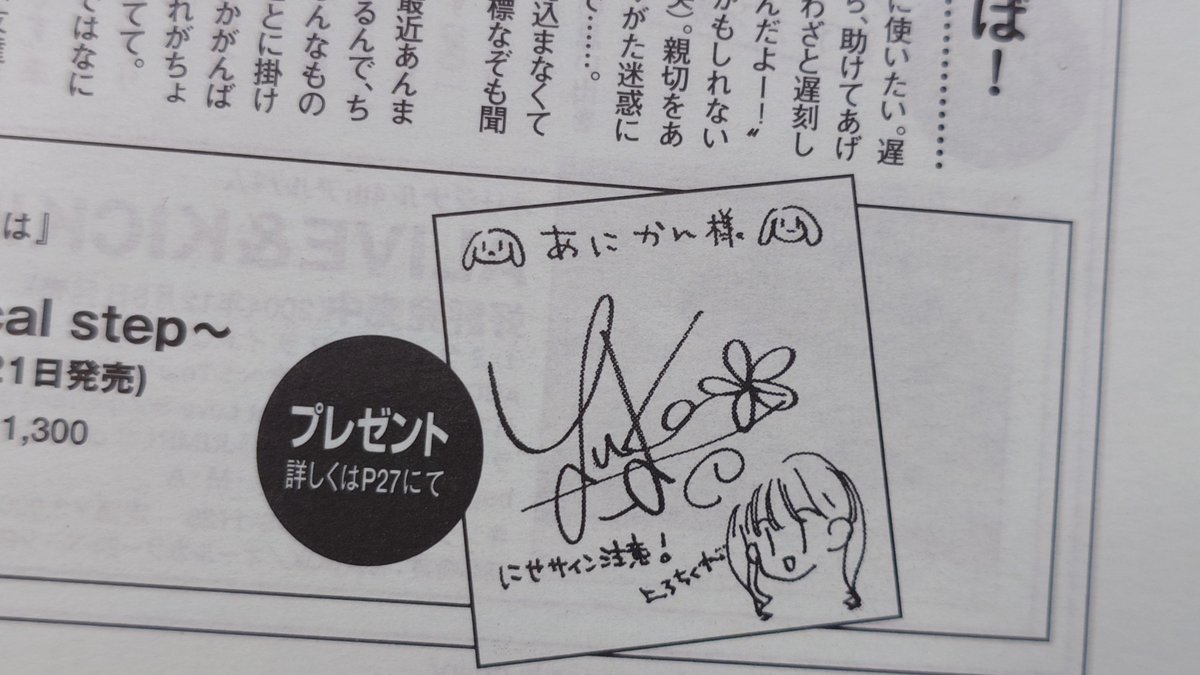 ば！
に使いたい。遅
ら、助けてあげ
わざと遅刻し
んだよー！〟
かもしれない
。親切をあ
がた迷惑に
て……。
込まなくて
標なぞも聞
最近あんま
るんで、ち
んなもの
とに掛け
かがんば
れがちょ
てて。
ではなに
は』
cal step～
21日発売)
1,300
プレゼント
詳しくはP27にて
あにかん様
にせサイン注意！